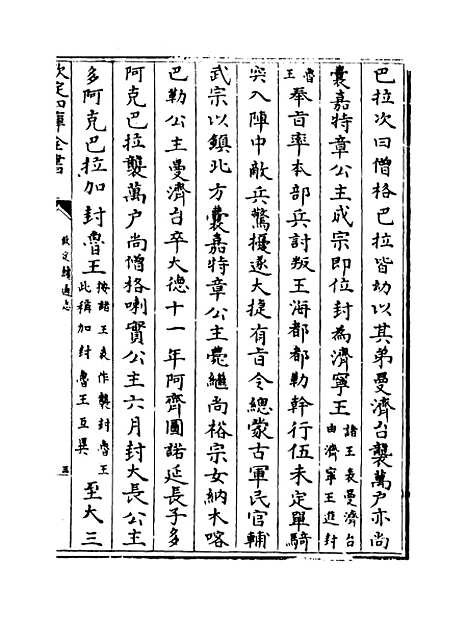 巴拉次曰僧格巴拉皆幼以其弟曼濟台襲萬户亦尚
囊嘉特章公主成宗即位封為濟寧王諸王表曼濟台由濟寧王進封
魯王奉旨率本部兵討叛王海都都勒幹行伍未定單騎
突入陣中敵兵驚擾遂大捷有旨令總蒙古軍民官輔
武宗以鎮北方囊嘉特章公主薨繼尚裕宗女納木喀
巴勒公主曼濟台卒大德十一年阿齊圖諾延長子多
阿克巴拉襲萬户尚僧格喇實公主六月封大長公主
多阿克巴拉加封魯王按諸王表作襲封魯王此稱加封魯王互異至大三
欽定四庫全書
欽定續通志
五